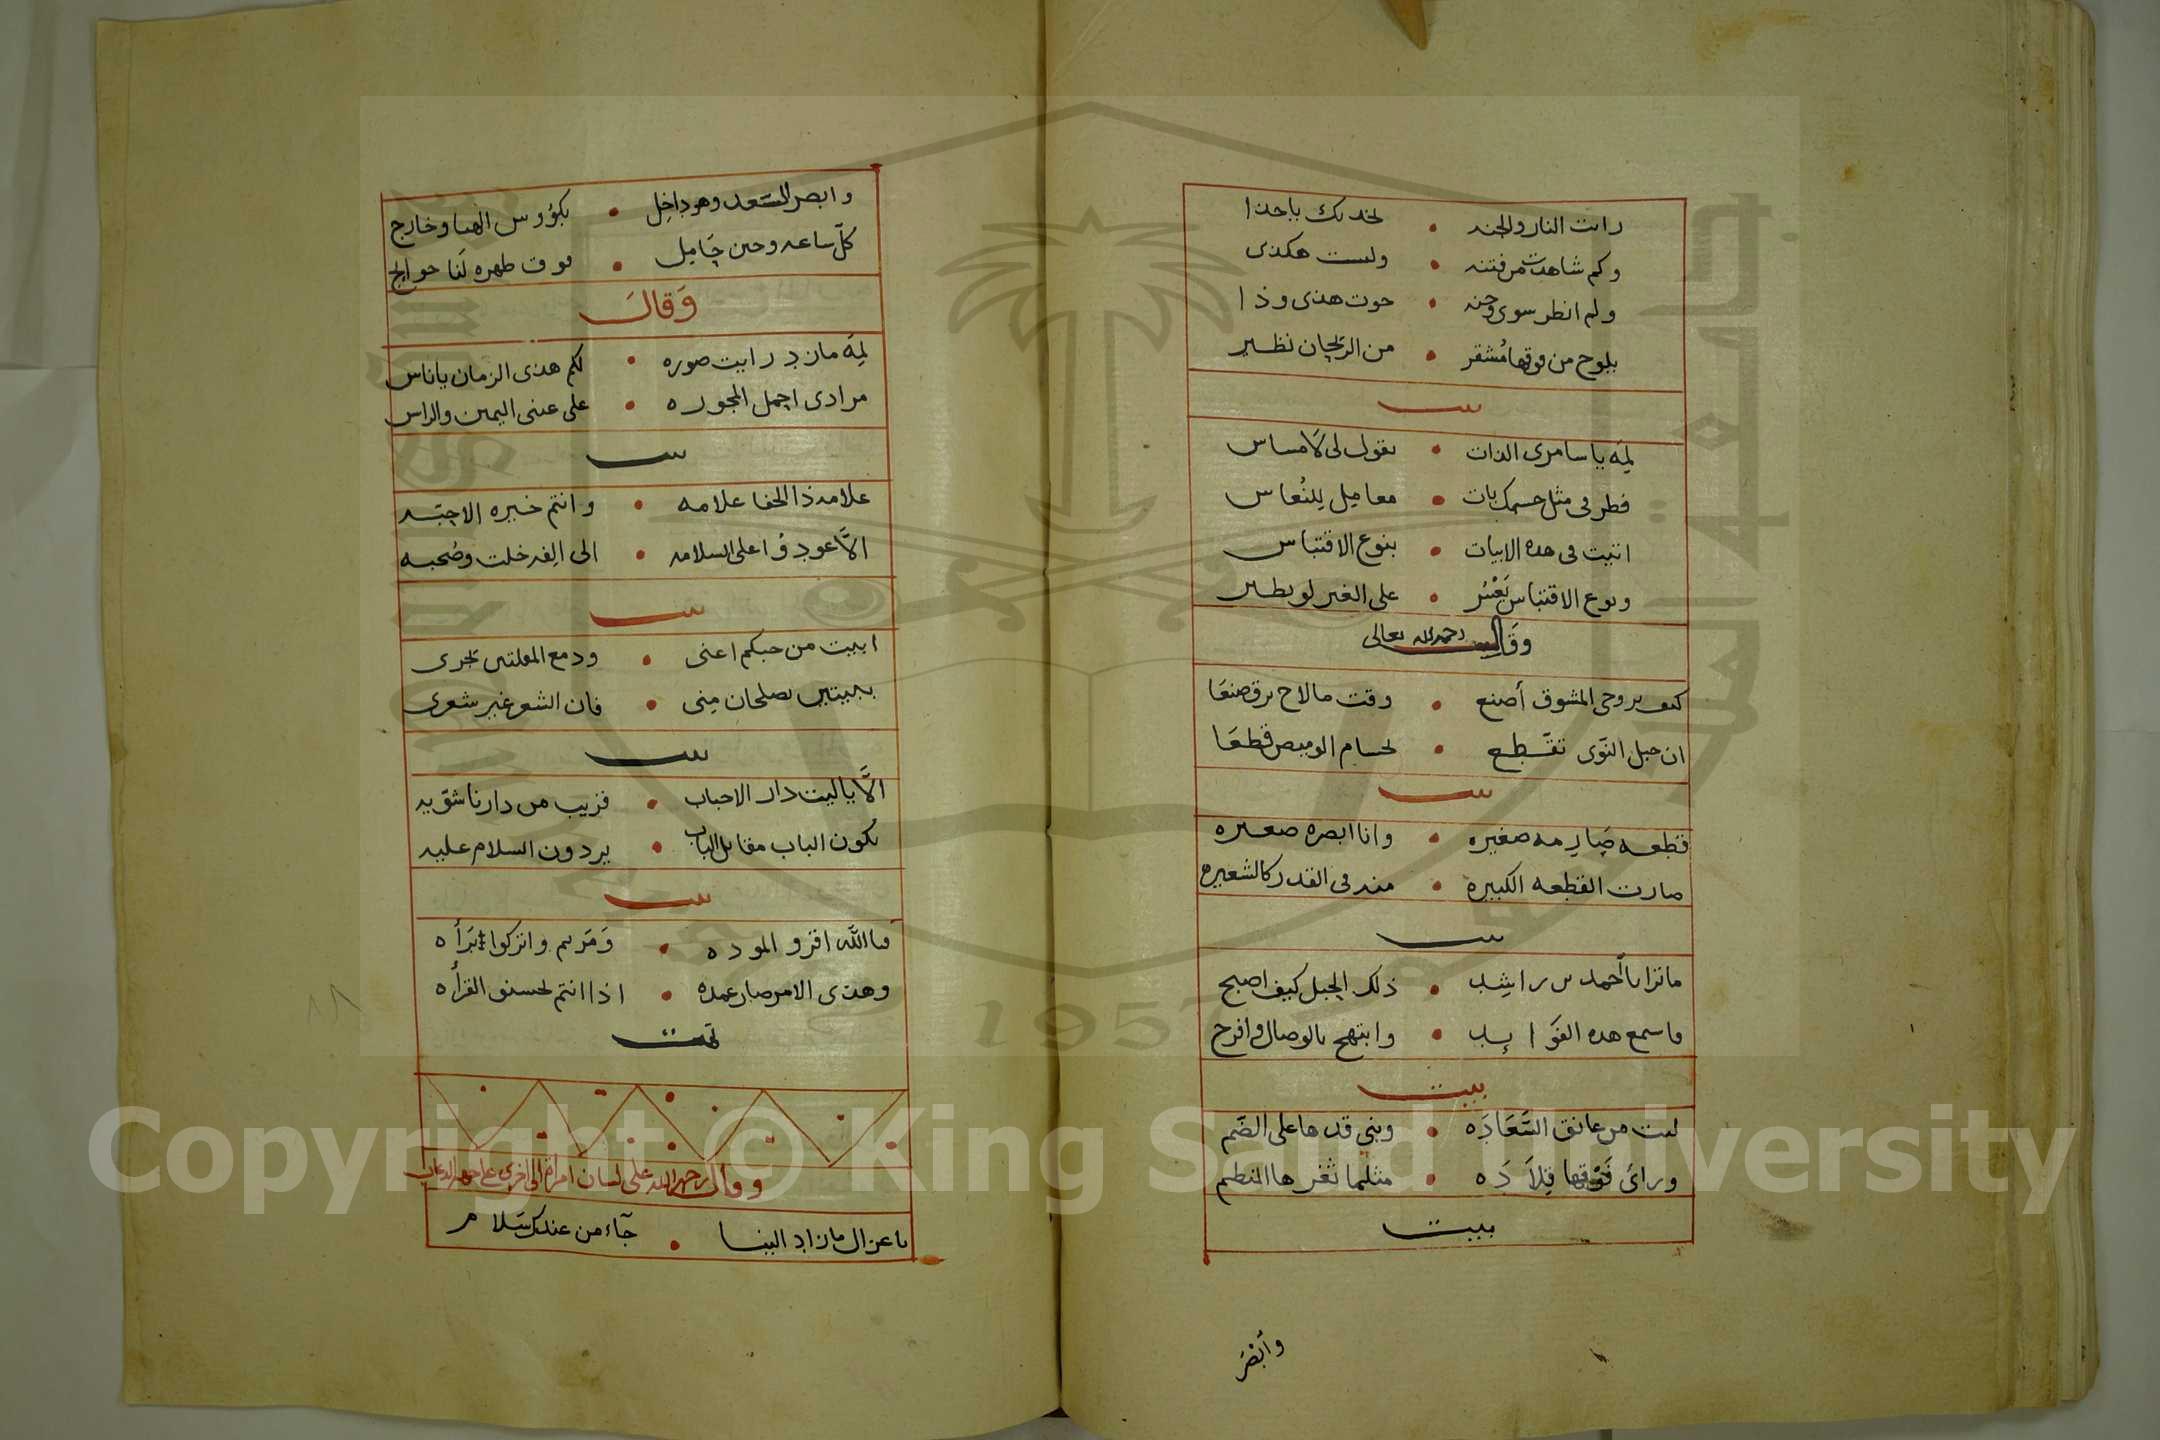 رايت النار والجنه • لخديك باحدا
وكم شاهدت من فتنه • ولست هكذى
ولم انظر سوى وجنه • حوت هذى وذا
يلوح من فوقها مُشقر • من الريحان نظير
بيت
لِمَه يا سامرى الذات • تقول لى لامساس
فطرفى مثل خسمك بات • معامل للنُعاس
اتيت فى هذه الابيات • بنوع الاقتباس
ونوع الاقتباس يَعْسُر • على الغير لو يطير
وقال رحمه الله تعالى
كيف بروحى المشوق أصنع • وقت ما لاح برق صنعَا
ان حبل النّوى تقَطع • بحسام الوميض قطعَا
بيت
قطعه صَارمه صغيره • وانا ابصره صغيره
صارت القطعه الكبيره • منه فى القدر كالشعيره
بيت
ما ترا يا أحمد بن راشد • ذلك الجبل كيف اصبح
فاسمع هذه الفَوَايد • وابتهج بالوصال وافرح
بيت
ليت من عانق السَّعَادَه • وبنى قدها على الضَم
وراىَ فَوْقها قِلاَدَه • مثلما ثغرها المنظم
بيت
وأبْصَرَ
وابصر السَّعد وهو داخِل • بكؤوس الهنا وخارج
كلّ ساعه وحين حَامِل • فوق ظهره لَنا حوايج
وَقالَ
لِمَه مازد رايت صوره • لكم هذى الزمان ياناس
مرادى اجمل المجوره • على عينى اليمين والراس
بيت
علامه ذا الجفا علامه • وانتم خيره الاحِبّه
الاَّ عودُوا على السلامه • الى الِفه خلت وصُحبه
بيت
ابيت من حبكم اعنى • ودمع المقلتين يجرى
ببيتين يصلحان مِنى • فان الشعر غير شعرى
بيت
الاَّ ياليت دار الاحباب • قريب من دارنا شوّيه
يكون الباب مقابل الباب • يردون السلام عليه
بيت
فاللَّه اقرو الموده • وَمَريم واتركوا بَرأه
وهذى الامر صار عمده • اذا انتم تحسنو القرأه
تمت
وقال رحمه الله على لسان امراة الى اخرى على جهة الدعاب
يا عزال مازاد الينا • جآء من عندك سَلام
Copyright © King Saud University
1957